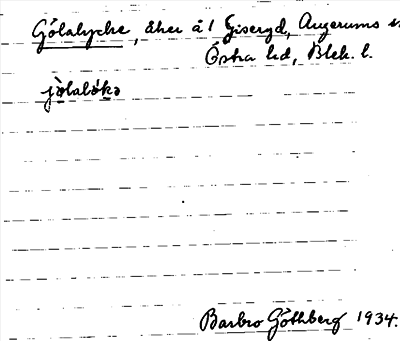 Gölalycke, åker å 1 Giseryd, Augerums
Östra hd, Blek. l.
jò̀laló̀kə
Barbro Göthberg 1934.